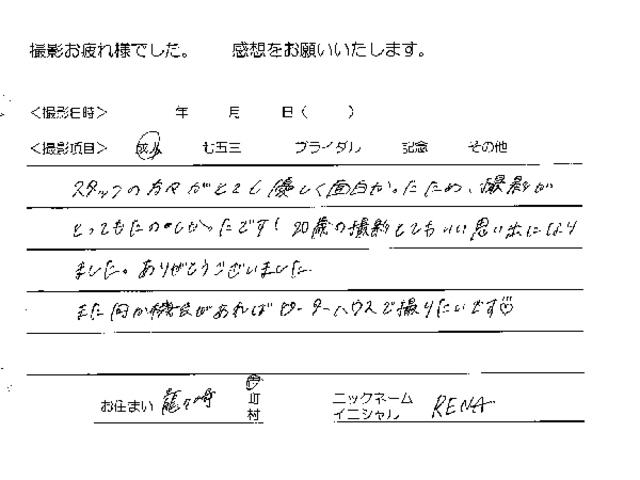 撮影お疲れ様でした。 感想をお願いいたします。
<撮影日時> 年 月 日( )
<撮影項目> 成人 七五三 ブライダル 記念 その他
スタッフの方々がとても優しく面白かったため、撮影が
とってもたのしかったです! 20歳の撮影とてもいい思い出になり
ました。ありがとうございました
また何か機会があればピーターハウスで撮りたいです♡
お住まい 龍ヶ崎 市町村
ニックネーム イニシャル RENA